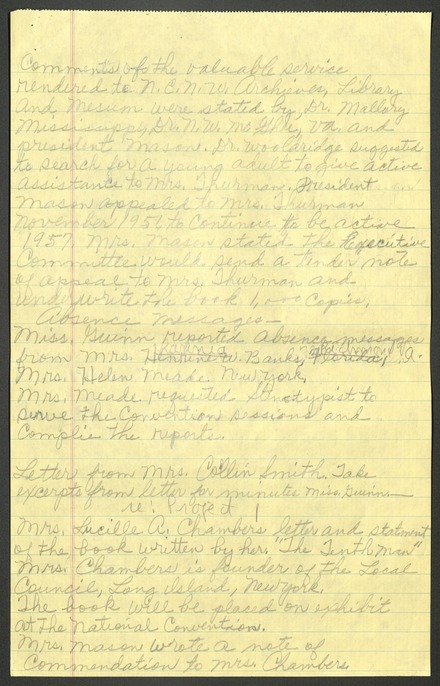 Comments of the valuable service
rendered to N.C.N.W. Archives, Library
and Mesium were stated by, Dr. Mallory
Mississippi, Dr. N.W. McGhee, Va. and
president Mason. Dr. Wooldridge suggested
to search for a young adult to give active
assistance to Mrs. Thurman. President
Mason appealed to Mrs. Thurman
November 1956 to continue to be active
1957. Mrs. Mason stated the Executive
Committee would send a tender note
of appeal to Mrs. Thurman and
underwrite the book 1,000 copies.
Absence messages—
Miss Guinn reported absence messages
from Mrs. W. Banks, Florida, Richmond, Va.
Mrs. Helen Meade. New York.
Mrs. Meade requested Stnotypist to
serve the Convention sessions and
complie the reports.
Letter from Mrs. Collin Smith. Take
excerpts from letter for minutes Miss. Guinn.—
re: Project 1
Mrs. Lucille A. Chambers letter and statment
of the book written by her. "The Tenth Man"
Mrs. Chambers is founder of the Local
Council, Long Island, New York.
The book will be placed on exhibit
at the National Convention.
Mrs. Mason wrote a note of
Commendation to Mrs. Chambers.